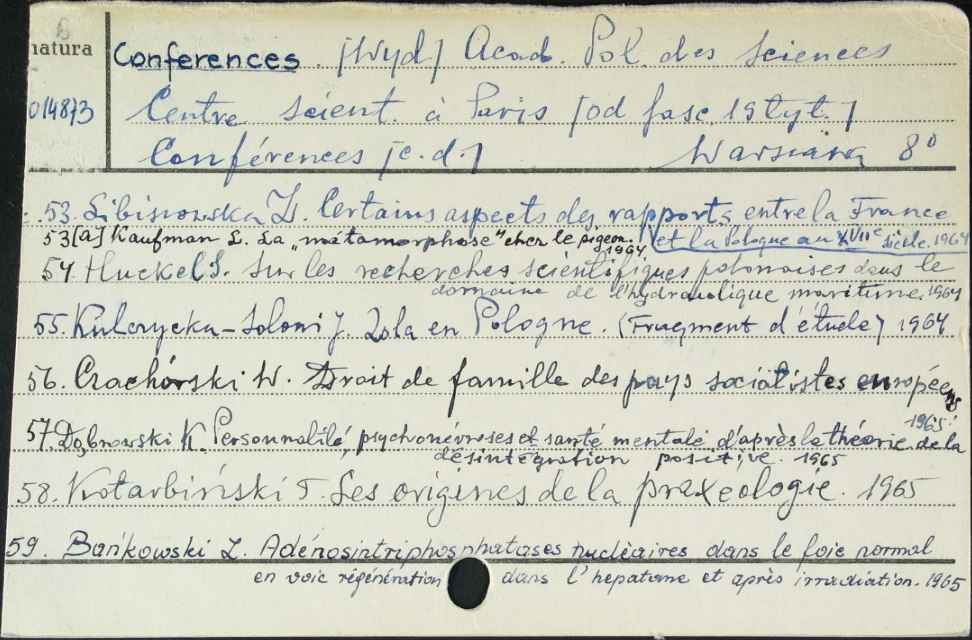 6
natura
Conferences. [Wyd] Acad. Pol. des Sciences
014873 Centre scient. à Paris [od fasc 19 tyt.]
Conférences [c.d.] Warszawa 8°
53. Libiszowska Z. Certains aspects des rapports entre la France
53[a] Kaufman L. La "métamorphose" chez le pigeon. 1964 et la Pologne au XVIIe siècle. 1964
54. Huckel S. Sur les recherches scientifigues polonaises dans le
domaine de l'hydraulique maritime. 1964
55. Kulczycka-Saloni J. Zola en Pologne. (Fragment d'étude) 1964
56. Czachórski W. Droit de famille des pays socialistes européens
1965.
57. Dąbrowski K. Personnalité, psychonévroses et santé mentale d'après la théorie de la
désintégration positive. 1965
58. Kotarbiński T. Les origines de la praxeologie. 1965
59. Bańkowski Z. Adénosintriphosphatases nucléaires dans le foie normal
en voie régénération dans l'hepatome et après irradiation. 1965